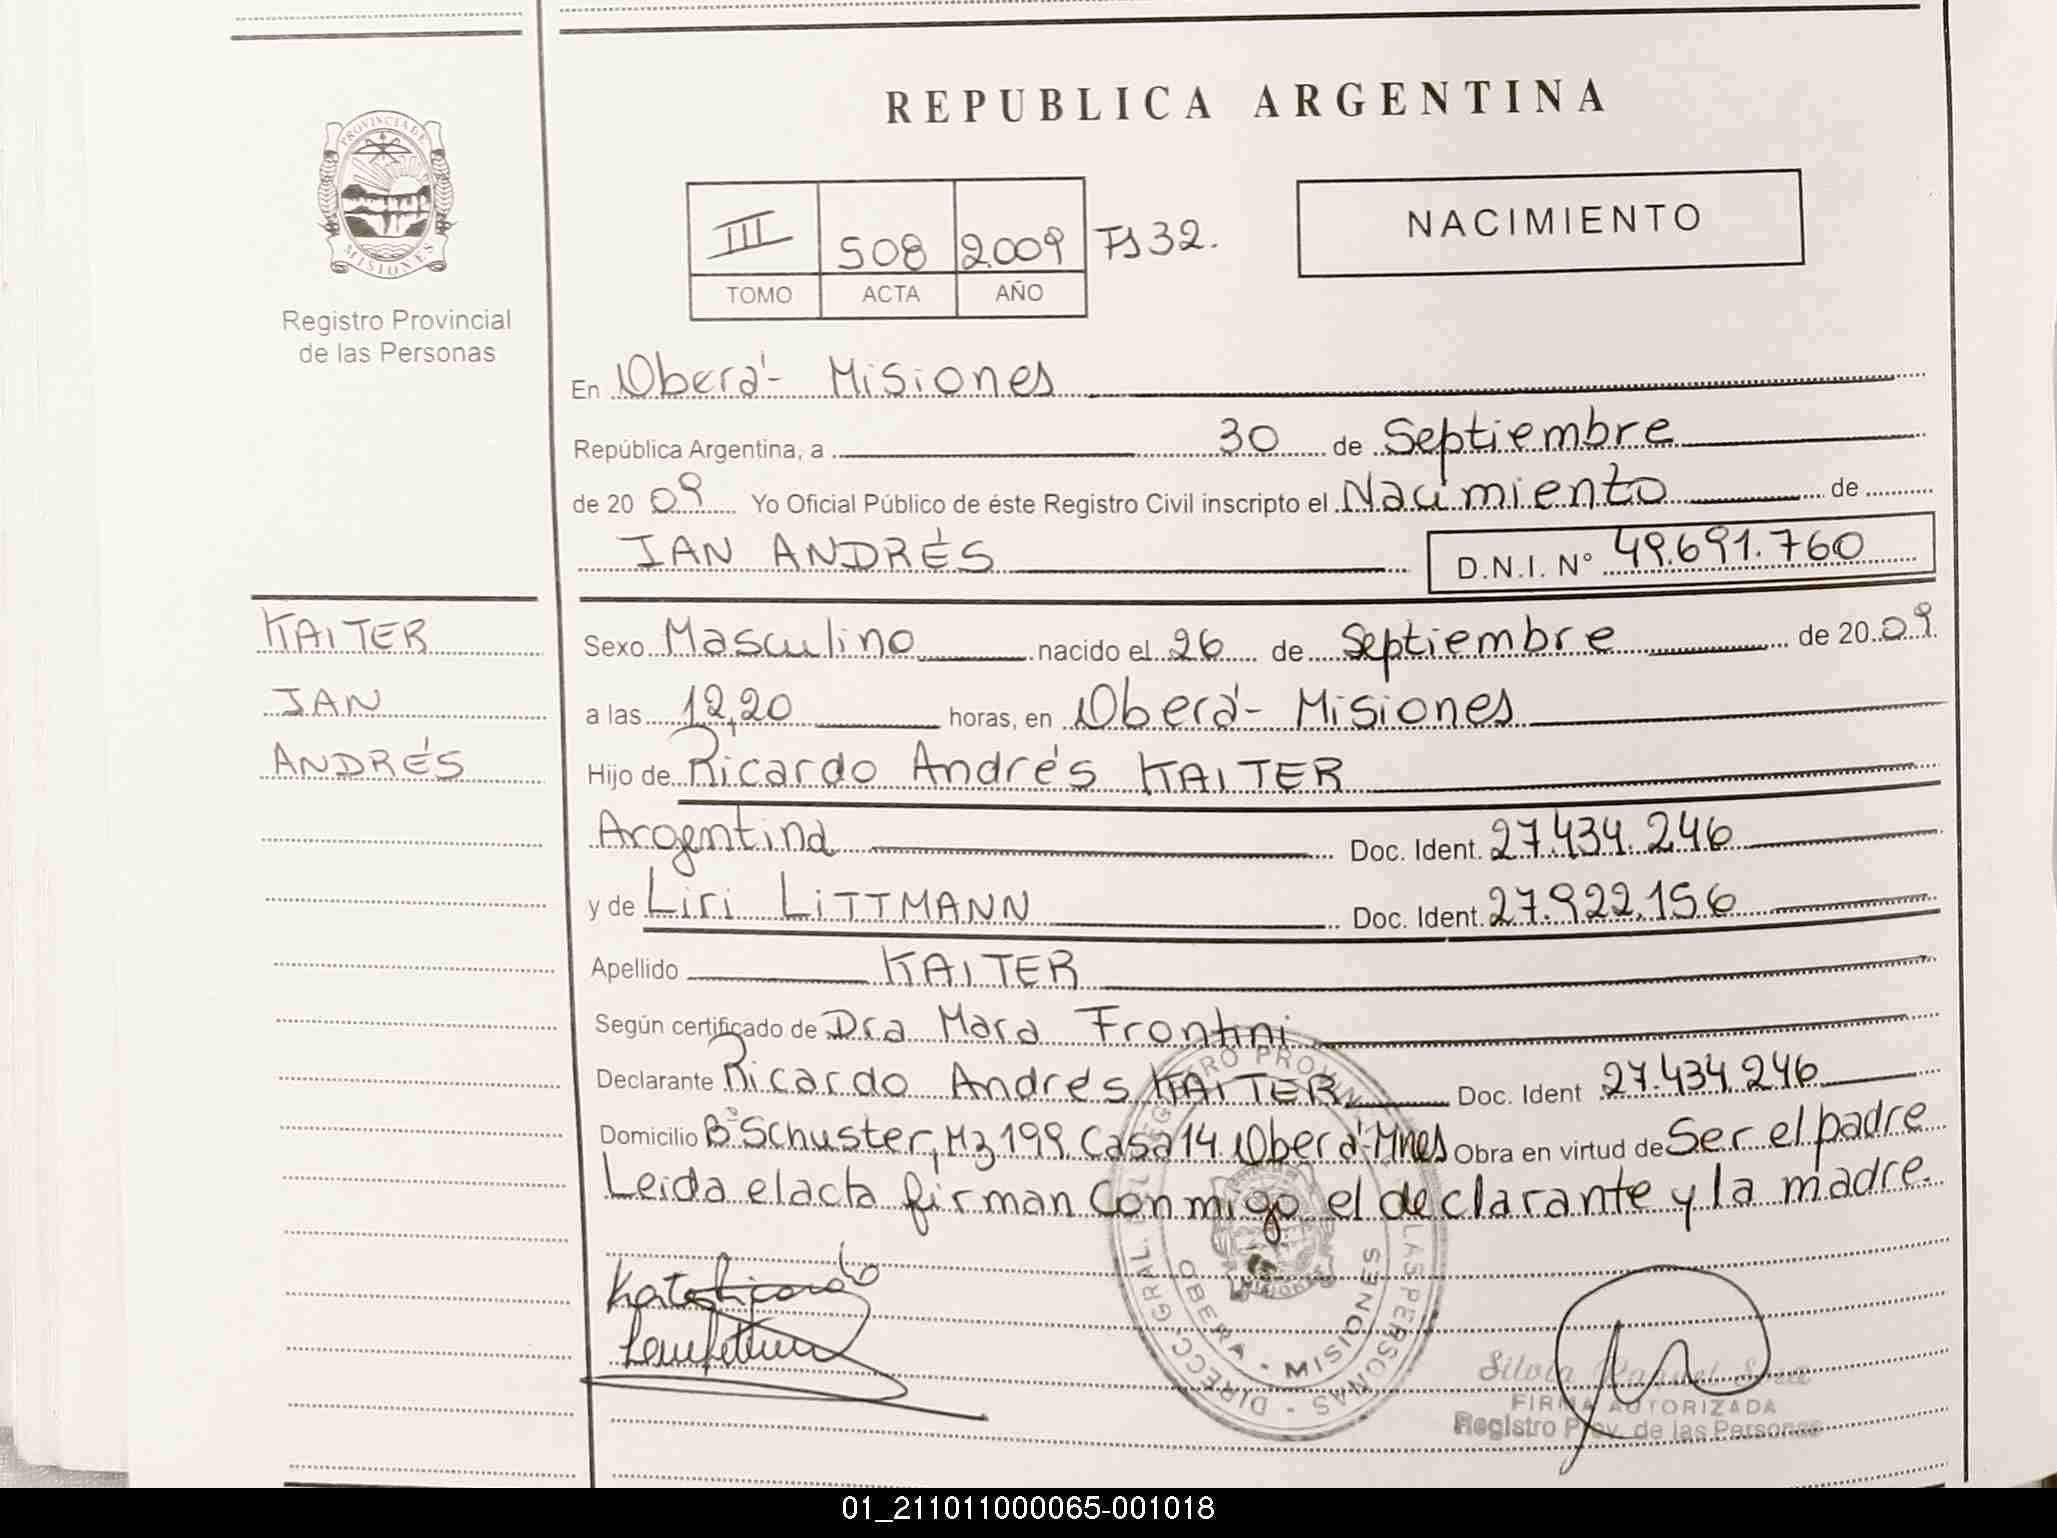 REPUBLICA ARGENTINA
PROVINCIA DE
MISIONES
Registro Provincial
de las Personas
III 508 2.009 Fs 32.
TOMO ACTA AÑO
NACIMIENTO
En Oberá - Misiones
República Argentina, a 30 de Septiembre
de 20 09 Yo Oficial Público de éste Registro Civil inscripto el Nacimiento de
IAN ANDRÉS D.N.I. Nº 49.691.760
KAITER
IAN
ANDRÉS
Sexo Masculino nacido el 26 de Septiembre de 20 09.
a las 12,20 horas, en Oberá - Misiones
Hijo de Ricardo Andrés KAITER
Argentina Doc. Ident. 27.434.246
y de Liri LITTMANN Doc. Ident. 27.922.156
Apellido KAITER
Según certificado de Dra Mara Frontini
Declarante Ricardo Andrés KAITER Doc. Ident 27.434.246
Domicilio Bº Schuster, Mz 199 Casa 14 Oberá-Mnes Obra en virtud de Ser el padre
Leida el acta firman conmigo el declarante y la madre.
DIRECC. GRAL. DEL REGISTRO PROVINCIAL DE LAS PERSONAS
OBERA - MISIONES
Silvia Raquel
FIRMA AUTORIZADA
Registro Prov. de las Personas
01_211011000065-001018